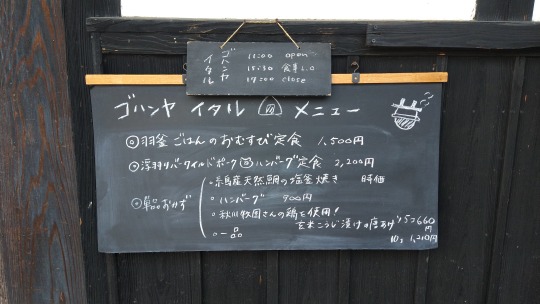 ゴハンヤ イタル
11:00 open
15:30 食事L.O
17:00 close
ゴハンヤ イタル メニュー
◎羽釜ごはんのおむすび定食 1,500円
◎浮羽リバーワイルドポーク ハンバーグ定食 2,200円
◎単品おかず
・糸島産天然鯛の塩釜焼き 時価
・ハンバーグ 900円
・秋川牧園さんの鶏を使用!
玄米こうじ漬けの唐あげ 5コ660円
10コ 1,210円